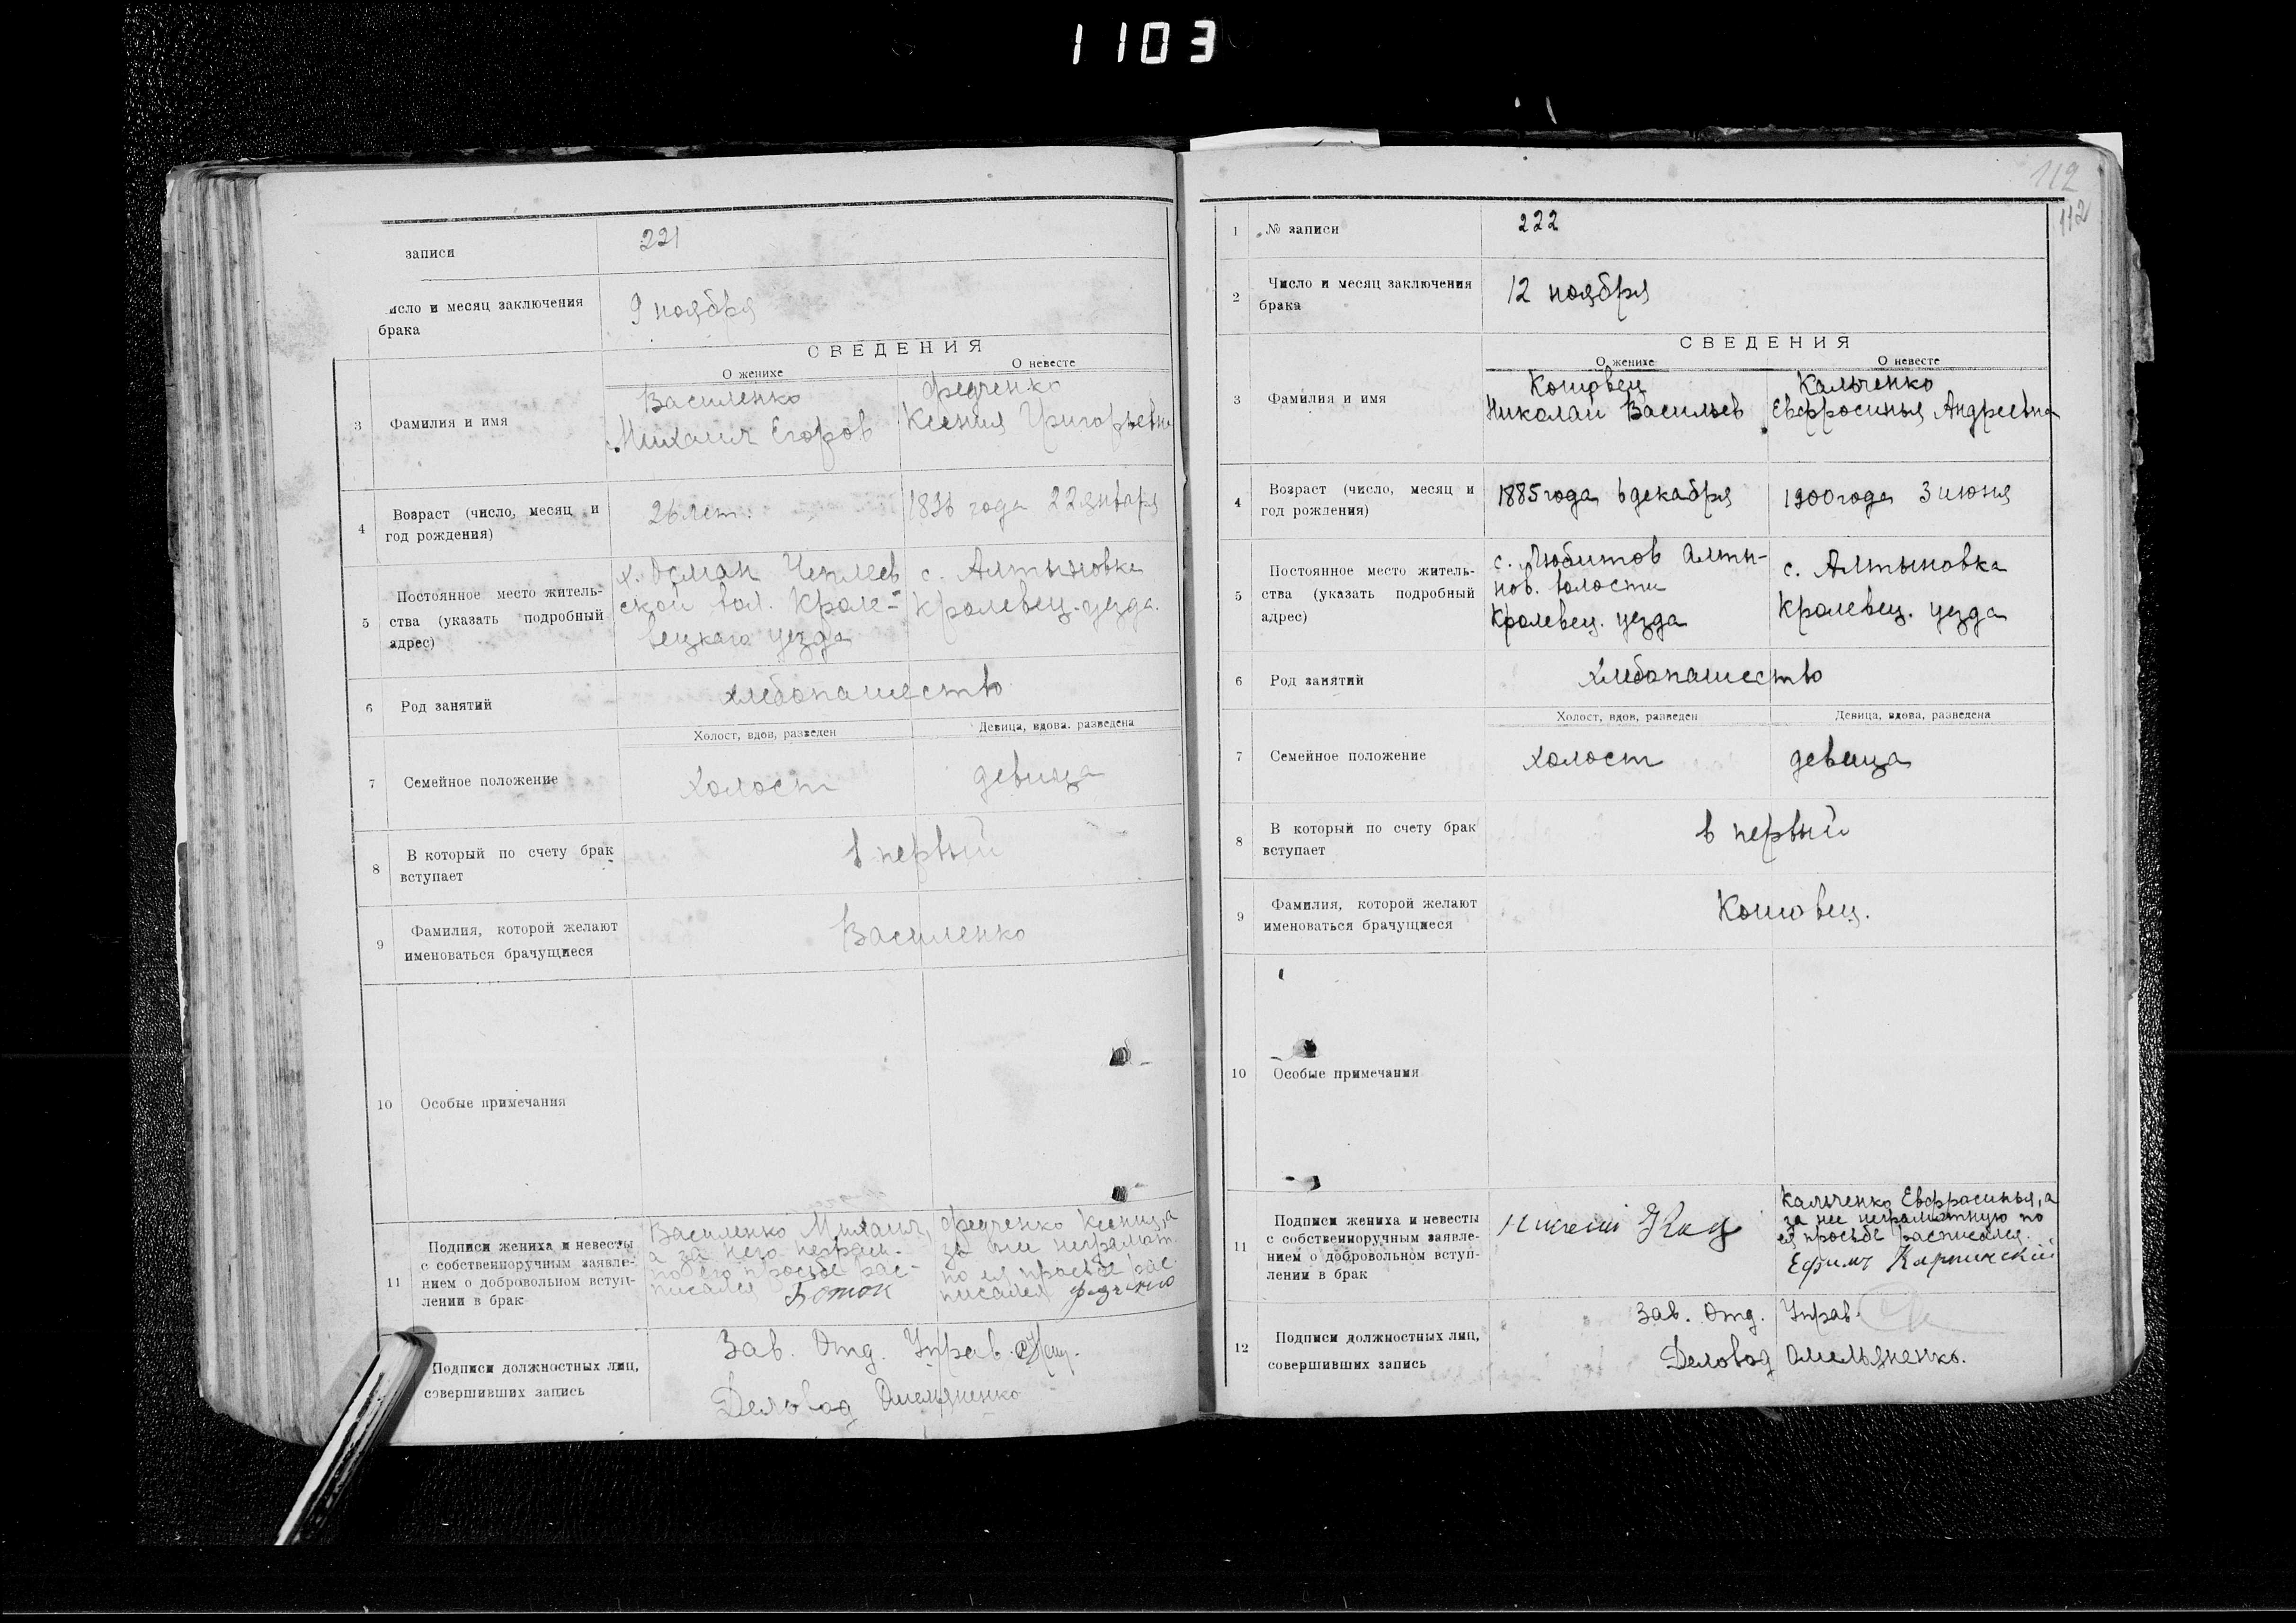 1103
записи
221
исло и месяц заключения
брака
9 ноября
СВЕДЕНИЯ
О женихе
О невесте
3
Фамилия и имя
Василенко
Михаил Егоров
Федченко
Ксения Григорьевна
4
Возраст (число, месяц и
год рождения)
26 лет.
1896 года 22 января
5
Постоянное место житель-
ства (указать подробный
адрес)
х. Осман Чеплеев
ской вол. Кроле-
вецкаго уезда
с. Алтыновка
Кролевец. уезда.
6
Род занятий
хлебопашество
7
Семейное положение
Холост, вдов, разведен
Девица, вдова. разведена
Холост
девица
8
В который по счету брак
вступает
в первый
9
Фамилия, которой желают
именоваться брачущиеся
Василенко
10
Особые примечания
11
Подписи жениха и невесты
с собственноручным заявле-
нием о добровольном вступ-
лении в брак
Василенко Михаил,
а за него неграм.
по его просьбе рас-
писался
Федченко Ксения, а
за нее неграмот.
по ея просьбе рас
писался Федченко
Подписи должностных лиц,
совершивших запись
Зав. Отд. Управ.
Деловод Омельяненко
112
112
1
№ записи
222
2
Число и месяц заключения
брака
12 ноября
СВЕДЕНИЯ
О женихе
О невесте
3
Фамилия и имя
Кошовец
Николай Васильев
Кальченко
Евфросинья Андреевна
4
Возраст (число, месяц и
год рождения)
1885 года 6 декабря
1900 года 3 июня
5
Постоянное место житель-
ства (указать подробный
адрес)
с. Любитов Алты-
нов. волости
Кролевец. уезда
с. Алтыновка
Кролевец. уезда
6
Род занятий
Хлебопашество
7
Семейное положение
Холост, вдов, разведен
Девица, вдова, разведена
холост
девица
8
В который по счету брак
вступает
в первый
9
Фамилия, которой желают
именоваться брачущиеся
Кошовец.
10
Особые примечания
11
Подписи жениха и невесты
с собственноручным заявле-
нием о добровольном вступ-
лении в брак
Кальченко Евфросинья, а
за нее неграмотную по
ея просьбе расписался.
Ефим Карпинский
12
Подписи должностных лиц,
совершивших запись
Зав. Отд. Управ.
Деловод Омельяненко.